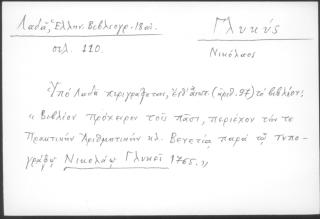 Λαδᾶ, Ἑλλην. Βιβλιογρ. 18 αἰ.
σελ. 110.
Γλυκύς
Νικόλαος
Ὑπό Λαδᾶ περιγράφεται, (ἀριθ. 97) τό βιβλίον:
« Βιβλίον πρόχειρον τοῖς πᾶσι, περιέχον τήν τε
Πρακτικήν Ἀριθμητικήν κλ. Βενετία, παρά τῷ τυπο-
γράφῳ Νικολάῳ Γλυκεῖ 1765. »